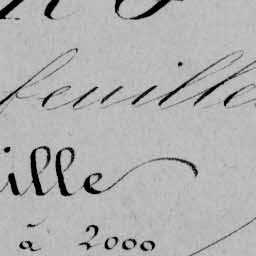 feuille
ille
à 2000